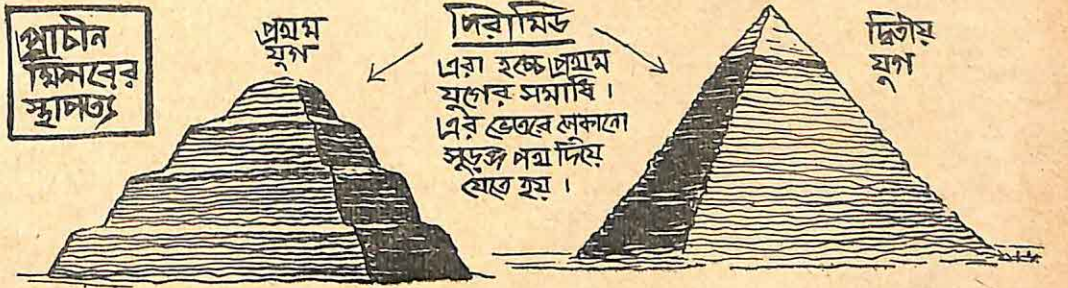 প্রাচীন
মিশরের
স্থাপত্য
প্রথম
যুগ
পিরামিড
এরা হচ্ছে প্রথম
যুগের সমাধি।
এর ভেতরে লুকানো
সুড়ঙ্গ পথ দিয়ে
যেতে হয়।
দ্বিতীয়
যুগ